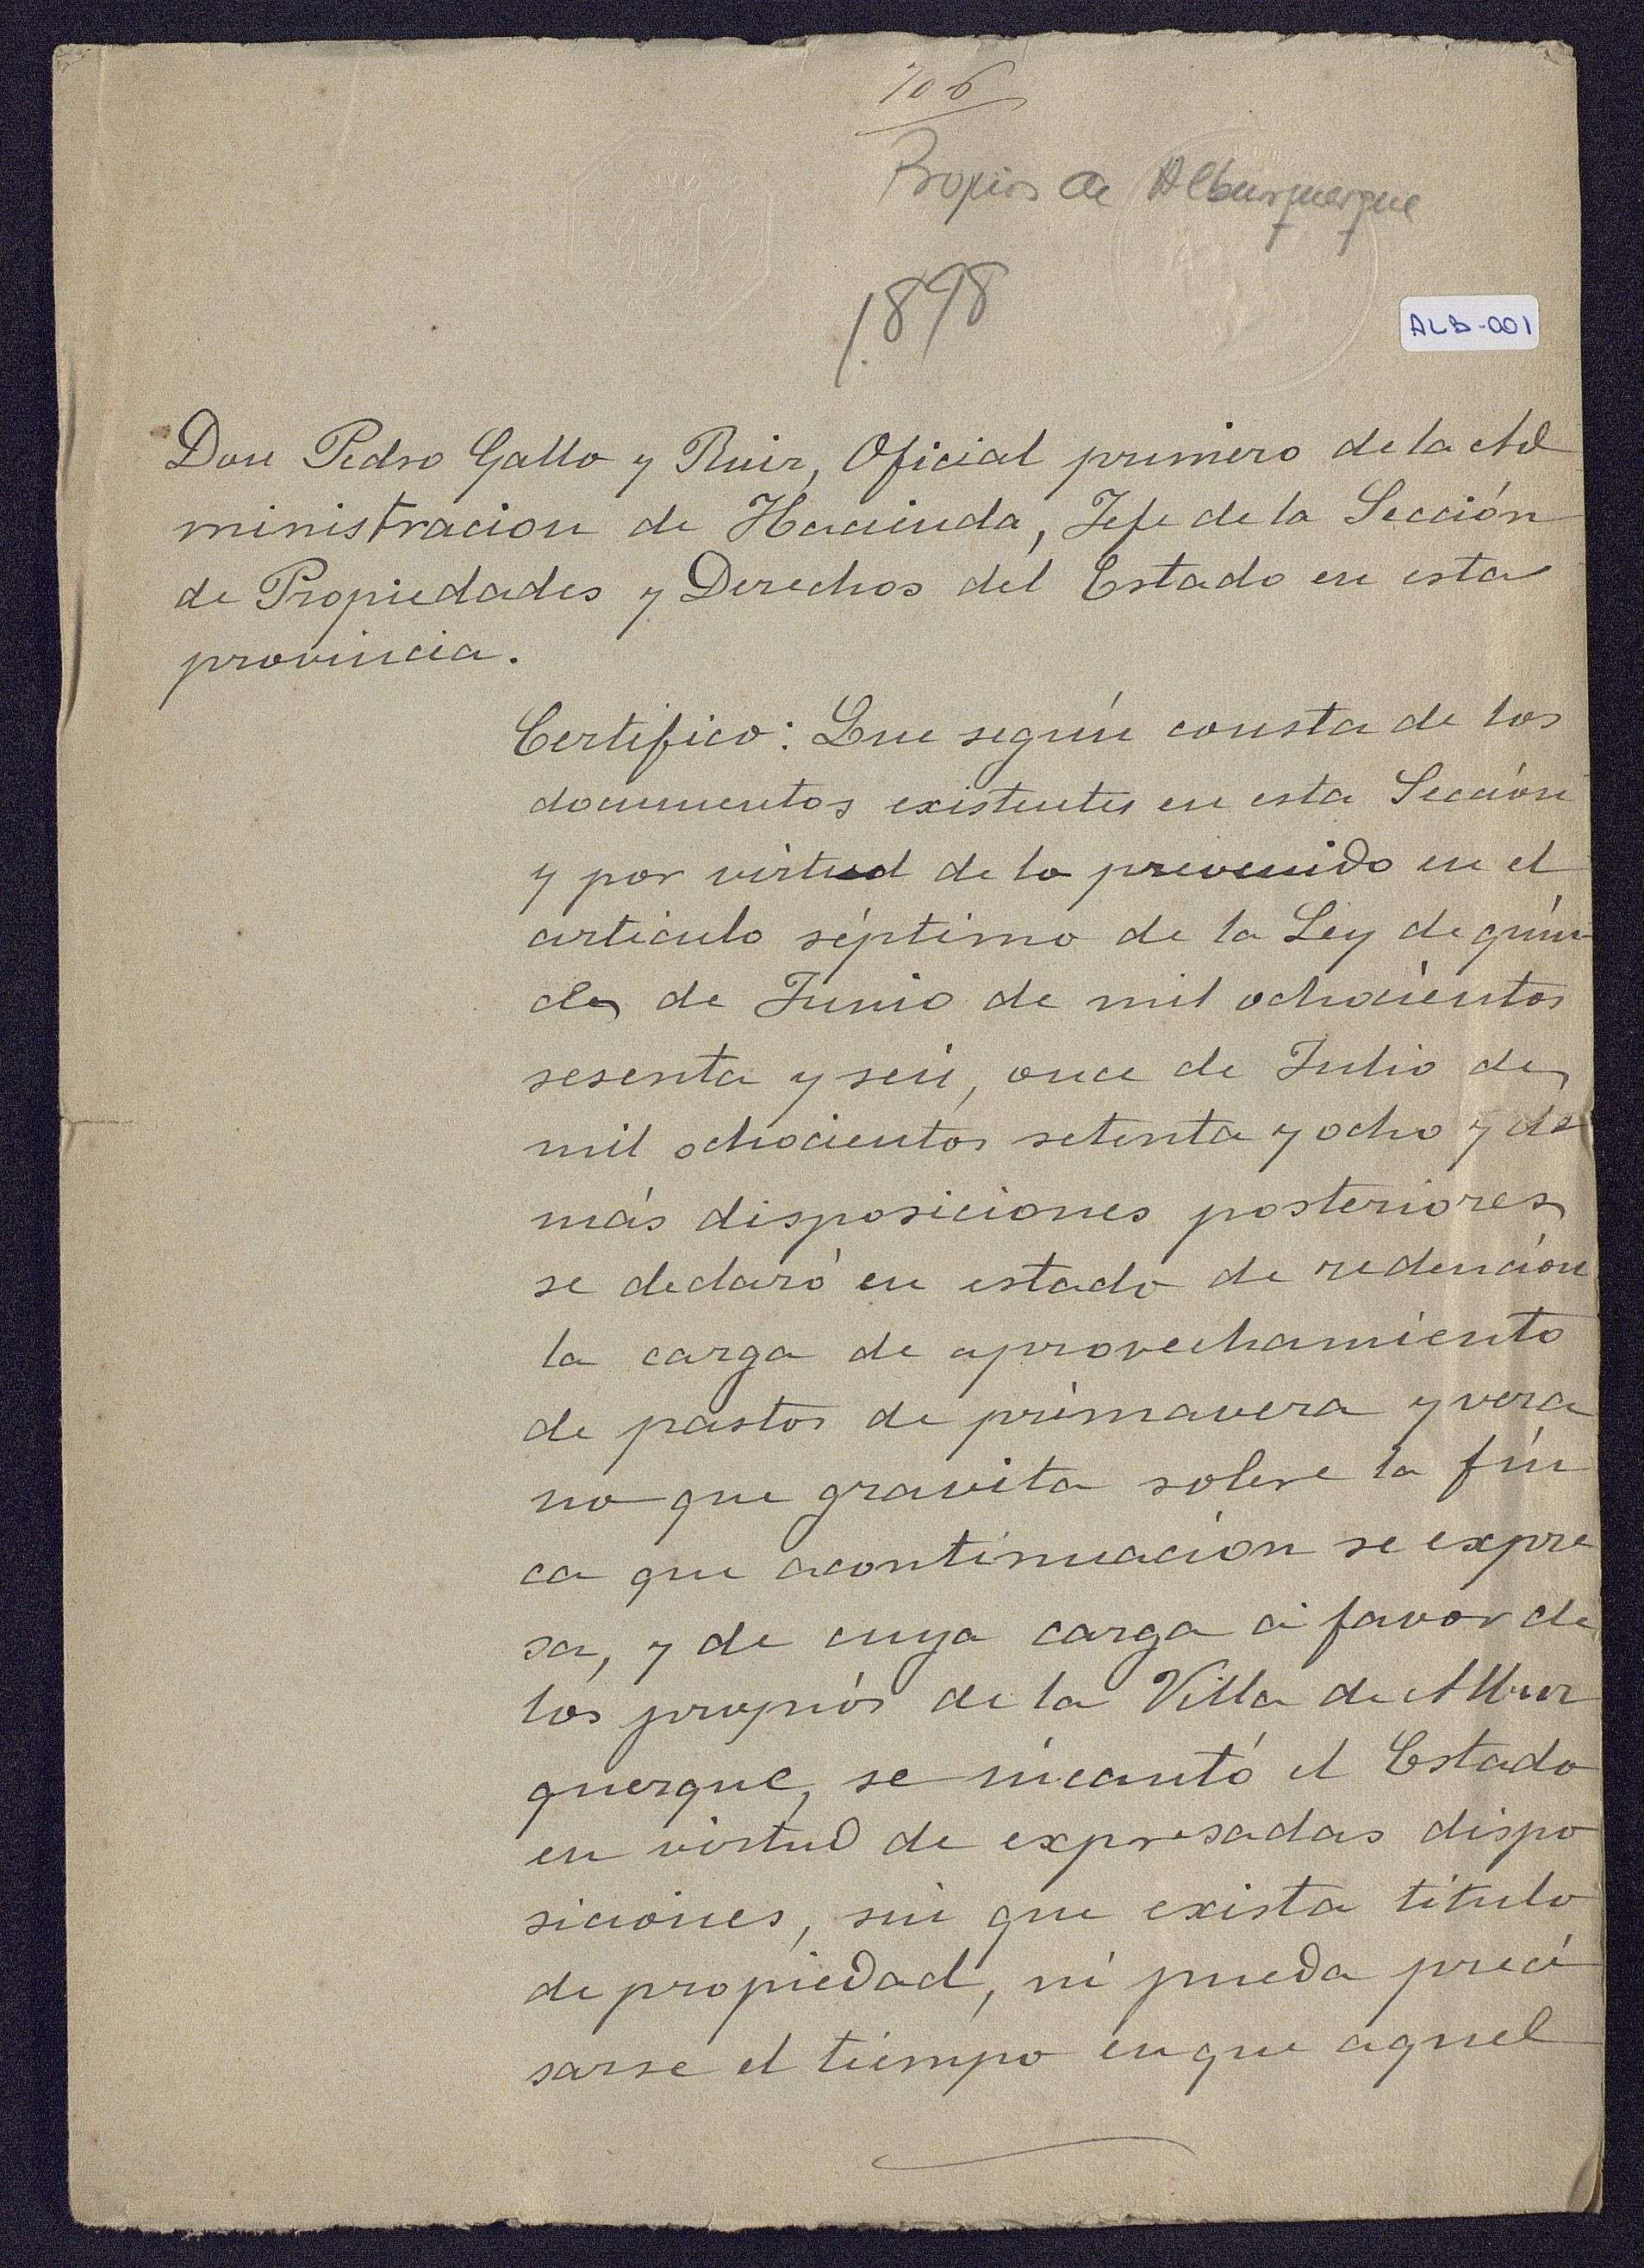 106
Propios de Alburquerque
1898
ALB-001
Don Pedro Gallo y Ruiz, Oficial primero de la Ad
ministracion de Hacienda, Jefe de la Sección
de Propiedades y Derechos del Estado en esta
provincia.
Certifico: Que según consta de los
documentos existentes en esta Sección
y por virtud de lo prevenido en el
articulo séptimo de la Ley de quin
de Junio de mil ochocientos
sesenta y seis, once de Julio de
mil ochocientos setenta y ocho y de
más disposiciones posteriores
se declaró en estado de redención
la carga de aprovechamiento
de pastos de primavera y vera
no que gravita sobre la fin
ca que acontinuación se expre
sa, y de cuya carga á favor de
los propios de la Villa de Albur
querque, se incautó el Estado
en virtud de expresadas dispo
siciones, sin que exista titulo
de propiedad, ni pueda preci
sarse el tiempo en que aquel